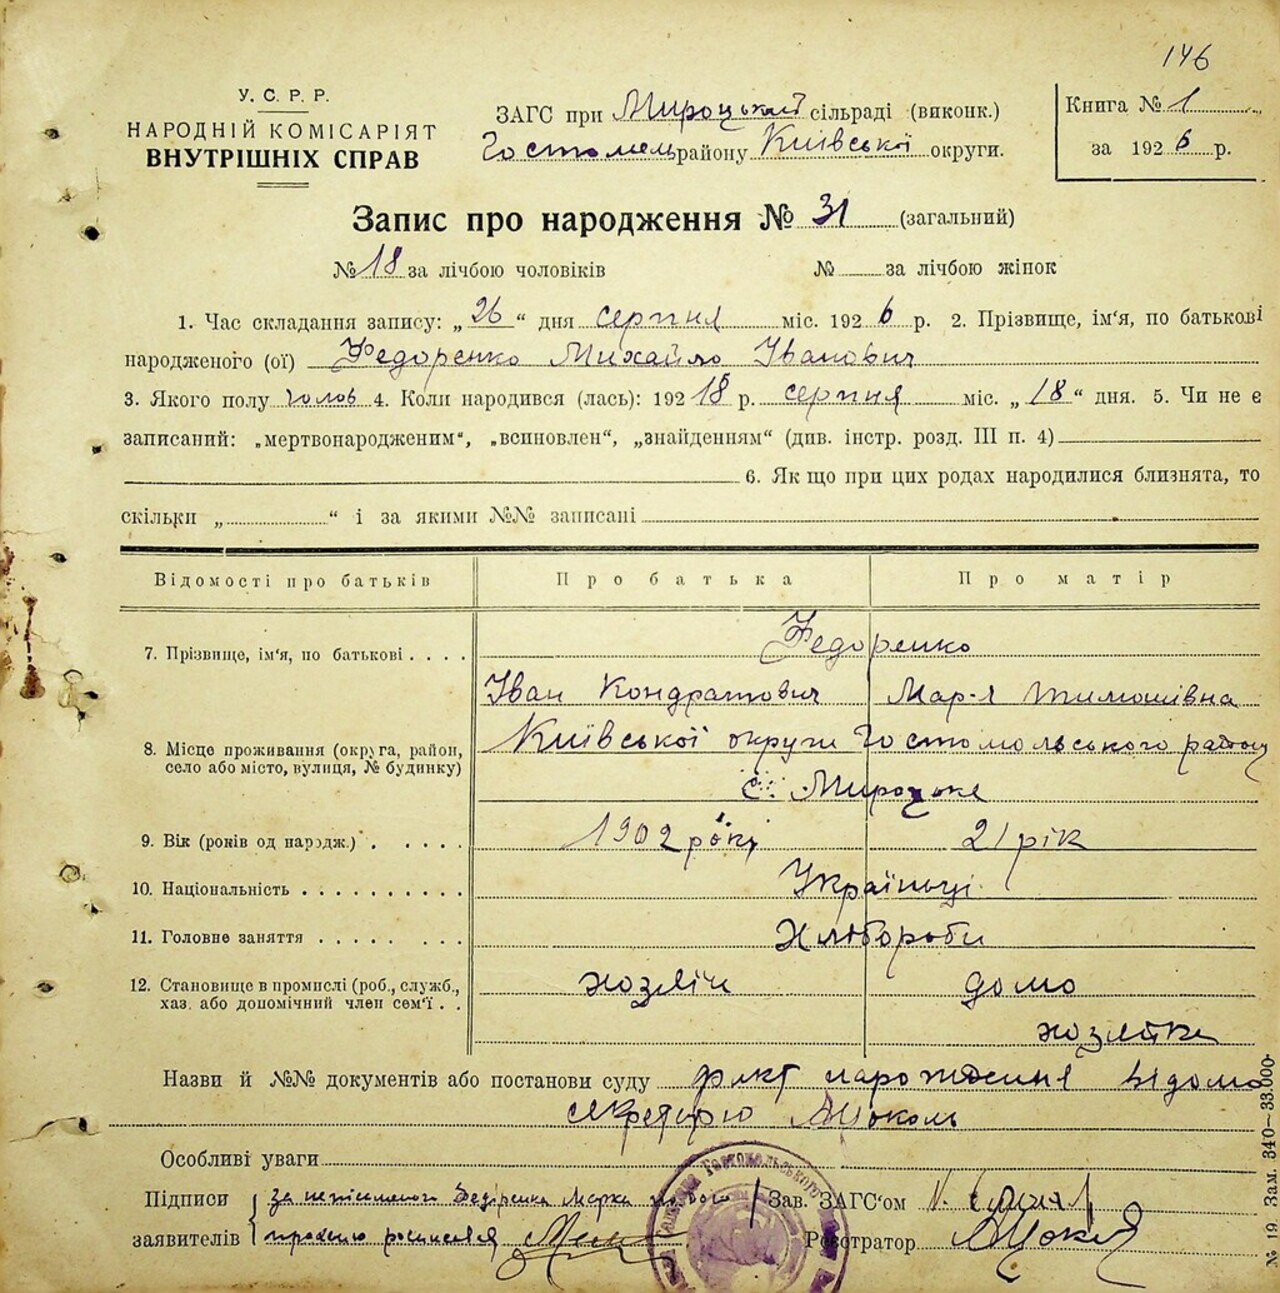 146
У. С. Р. Р.
НАРОДНІЙ КОМІСАРІЯТ
ВНУТРІШНІХ СПРАВ
ЗАГС при Мироцький сільраді (виконк.)
Гостомель району Київської округи.
Книга № 1
за 1926 р.
Запис про народження № 31 (загальний)
№ 18 за лічбою чоловіків № за лічбою жінок
1. Час складання запису: „26“ дня серпня міс. 1926 р. 2. Прізвище, ім'я, по батькові
народженого (ої) Федоренко Михайло Іванович
3. Якого полу чолов 4. Коли народився (лась): 192 18 р. серпня міс. „18“ дня. 5. Чи не є
записаний: „мертвонародженим“, „всиновлен“, „знайденням“ (див. інстр. розд. III п. 4)
6. Як що при цих родах народилися близнята, то
скільки „ “ і за якими №№ записані
Відомості про батьків Про батька Про матір
7. Прізвище, ім'я, по батькові . . . . Федоренко
Іван Кондратович Мар-я Тимошівна
8. Місце проживання (округа, район,
село або місто, вулиця, № будинку) Київської округи Гостомольського району
с. Мироцьке
9. Вік (років од народж.) . . . . . 1902 рокy 21 рік
10. Національність . . . . . . . . . . Українці
11. Головне заняття . . . . . . . . Хлібороби
12. Становище в промислі (роб., служб.,
хаз. або допомічний член сем'ї . . хозяїн домо
хозяйка
Назви й №№ документів або постанови суду факт народження відомо
секретарю
Особливі уваги
Підписи за неписьменого Федоренка Марка його Зав. ЗАГС'ом
заявителів проханю росписався Реєстратор
№ 19. Зам. 340—33.000.